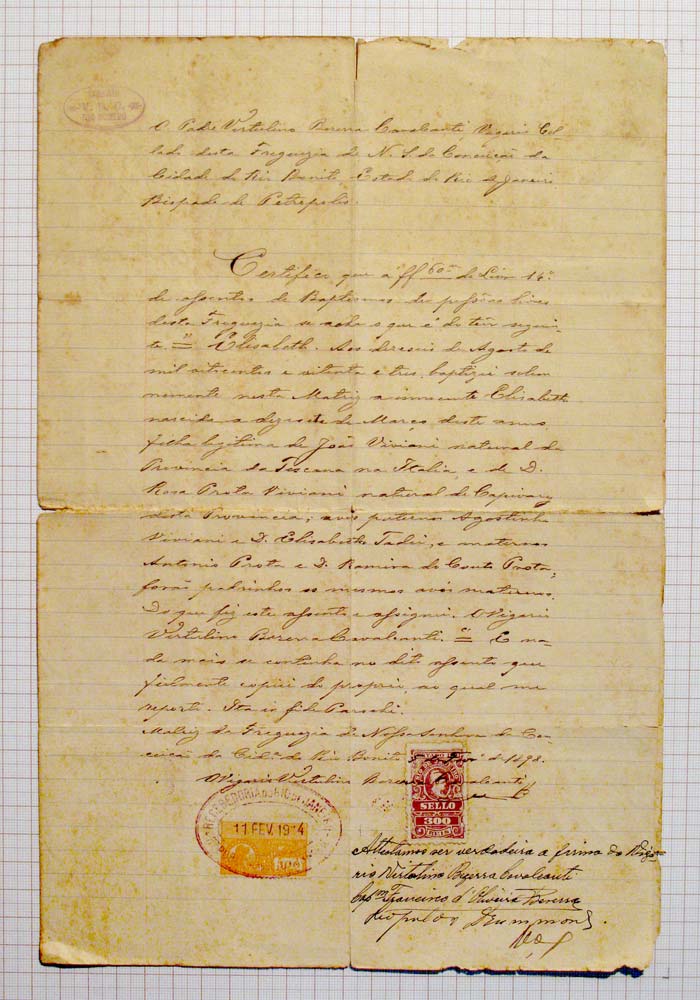 O Padre Virtulino Bezerra Cavalcanti Vigario Col-
lado desta Freguezia de N. S. da Conceição da
Cidade de Rio Bonito Estado do Rio de Janeiro
Bispado de Petropolis.
Certifico que a ff 60 do Livro 14º
de assentos de Baptismos de pessôas livres
desta Freguezia se acha o que é do teôr seguin-
te = Elisabeth. Aos deseseis de Agosto de
mil oitocentos e oitenta e tres, baptizei solem
nemente nesta Matriz a innocente Elisabeth
nascida a dezesete de Março deste anno,
filha legitima de João Viviani natural da
Provincia da Toscana na Italia, e de D.
Rosa Prota Viviani natural de Capivary
desta Provincia; avós paternos Agostinho
Viviani e D. Elisabetha Tadei, e maternos
Antonio Prota e D. Ramira do Couto Prota;
forão padrinhos os mesmos avós maternos.
Do que fiz este assento e assignei. O Vigario
Virtulino Bezerra Cavalcanti. = E na-
da mais se continha no dito assento que
fielmente copiei do proprio ao qual me
reporto. Ita in fide Parochi.
Matriz da Freguezia de Nossa Senhora da Con-
ceição da Cidᵉ do Rio Bonito de 1898.
O Vigario Virtulino Bezerra Cavalcanti
SELLO
300
REIS
RECEBEDORIA DO RIO DE JANEIRO
11 FEV. 1914
Attestamos ser verdadeira a firma do Viga-
rio Virtulino Bezerra Cavalcanti
Francisco d'Oliveira Bezerra
Leopoldo Drummond